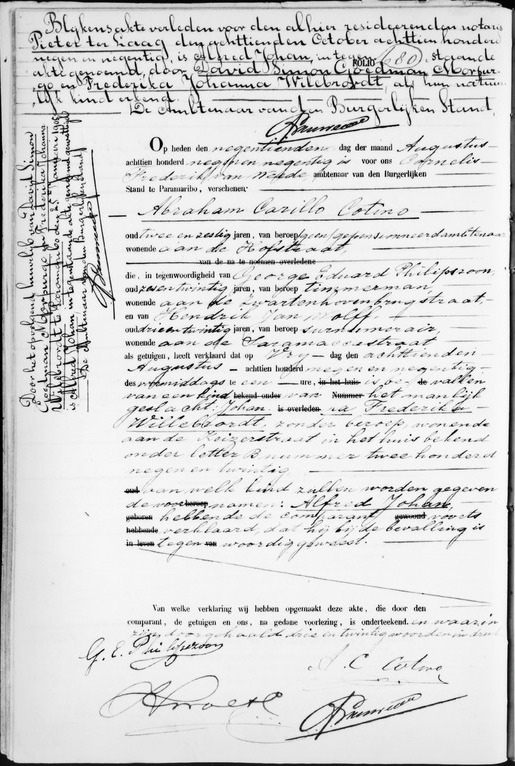 Blijkens akte verleden voor den alhier resideerenden notaris
Pieter ter Laag den achttienden October achttien honderd
negen en negentig, is Alfred Johan, in tweede FOLIO 680 staande
akte genoemd, door David Simon Goedman Morpur-
go en Frederika Johanna Willebrordt, als hun natuur-
lijk kind erkend.
De Ambtenaar van den Burgerlijken Stand,
Door het opvolgend huwelijk van David Simon
Goedman Morpurgo en Frederika Johanna
Willebrordt te Paramaribo den 25 1905
is Alfred Johan in nevenstaande akte genoemd gewettigd
De Ambtenaar van den Burgerlijken Stand
Op heden den negentienden dag der maand Augustus
achttien honderd negen en negentig is voor ons Cornelis
Frederik van ambtenaar van den Burgerlijken
Stand te Paramaribo, verschenen:
Abraham Carillo Cotino
oud twee en zestig jaren, van beroep gepensioneerd ambtenaar
wonende aan de straat,
van de na te noemen overledene
die, in tegenwoordigheid van George Eduard Philipszoon,
oud zes en twintig jaren, van beroep timmerman,
wonende aan de Zwartenhovenbrugstraat,
en van Hendrik Jan Wolff
oud drie en twintig jaren, van beroep surnumerair,
wonende aan de Saramaccastraat
als getuigen, heeft verklaard dat op Vrij- dag den achttienden
Augustus achttien honderd negen en negentig
des voormiddags te een ure, in het huis is be- de wallen
van een kind bekend onder van Nummer het manlijk
geslacht: Johan is overleden na Frederika
Willebrordt, zonder beroep, wonende
aan de Keizerstraat in het huis bekend
onder letter B nummer twee honderd
negen en twintig
oud van welk kind zullen worden gegeven
de voornamen: Alfred Johan,
geboren hebbende de comparant gewoond voorts
hebbende verklaard, dat hij bij de bevalling is
in leven tegen van woordig geweest.
Van welke verklaring wij hebben opgemaakt deze akte, die door den
comparant, de getuigen en ons, na gedane voorlezing, is onderteekend. en waarin
zijn doorgehaald drie en twintig woorden in druk
G. E. Philipszoon
A. C. Cotino